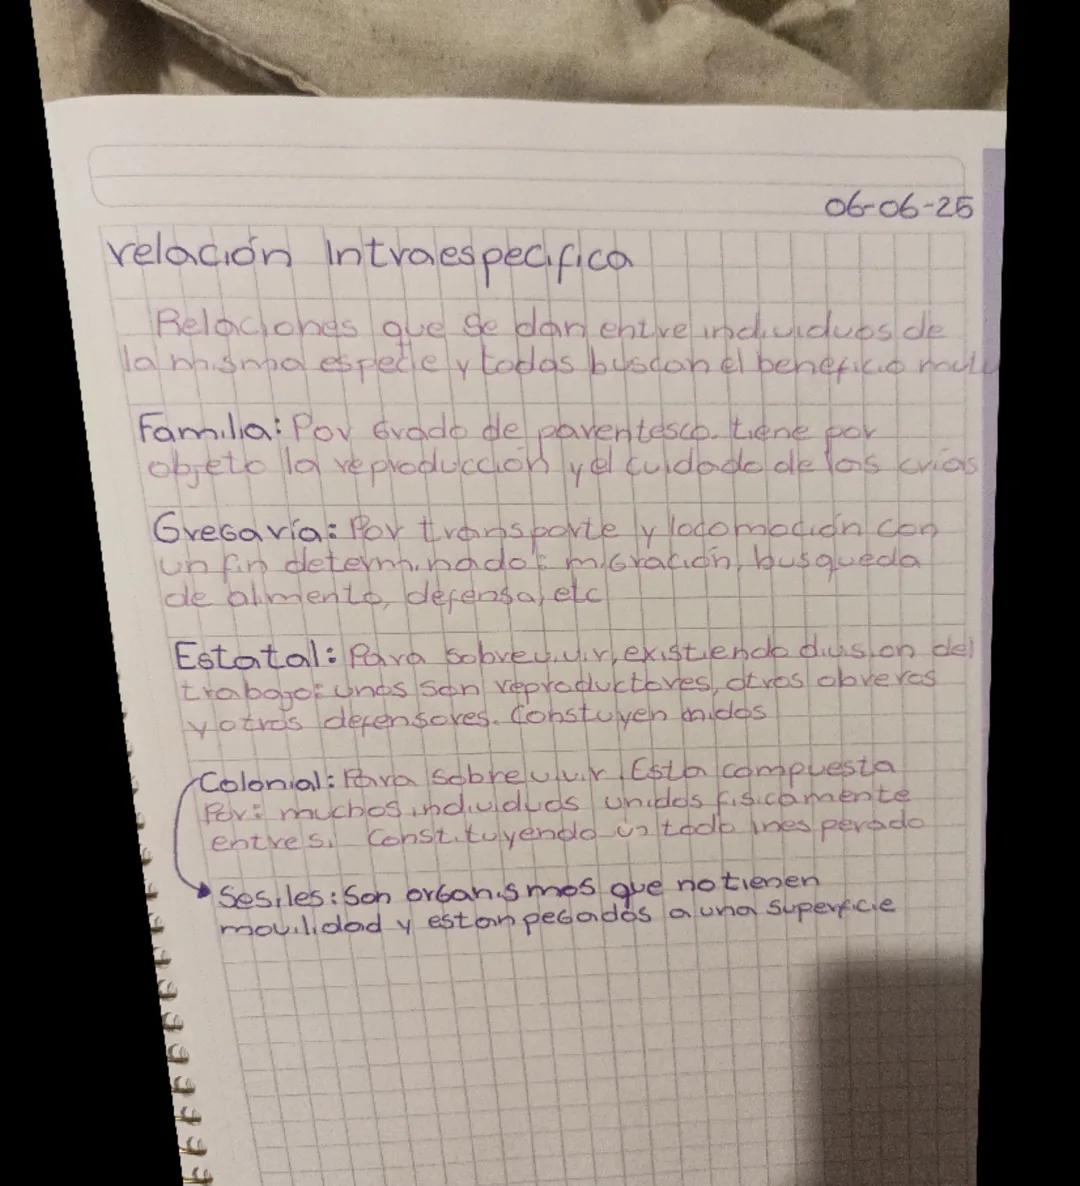 06-06-25
relación Intraespecifica
Relaciones que se dan entre individuos de
la misma especie y todas buscan el beneficio mutu
Familia: Por Grado de parentesco. tiene por
objeto la reproducción y el cuidado de las crias
Gregaria: Por transporte y locomoción con
un fin determinado: migración, busqueda
de alimento, defensa, etc
Estatal: Para sobrevivir, existiendo division del
trabajo: unos son reproductores, otros obreros
y otros defensores. Constuyen nidos
Colonial: Para sobrevivir. Esta compuesta
Por: muchos individuos unidos fisicamente
entre si. Constituyendo un todo inesperado
Sesiles: Son organismos que no tienen
movilidad y estan pegados a una superficie